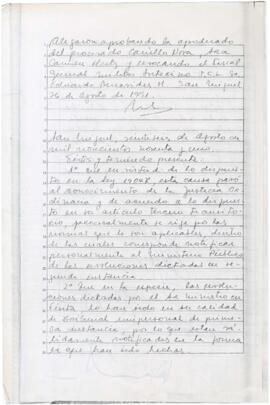 Alegaron aprobando la
del procesado Carrillo Nova, Ana
Carmen Hertz y revocando el Fiscal
General Militar
Eduardo Fernández H. San Miguel
26 de Agosto de 1991.
San Miguel, veintiseis de Agosto de
mil novecientos noventa y uno.
Vistos y teniendo presente:
1º que en virtud de lo dispues
to en la ley 19.047, esta causa pasó
al conocimiento de la Justicia Or
dinaria y de acuerdo a lo dispues
to en su artículo tercero transito
rio, procesalmente se rige por las
normas que le son aplicables, dentro
de las cuales corresponde notificar
personalmente al Ministerio Público
de las resoluciones dictadas en se
gunda instancia.
2º Que en la especie, las resolu
ciones dictadas por el Sr Ministro en
Visita, lo han sido en su calidad
de tribunal unipersonal de prime
ra instancia, por lo que están vá
lidamente notificadas en la forma
en que han sido hechas.